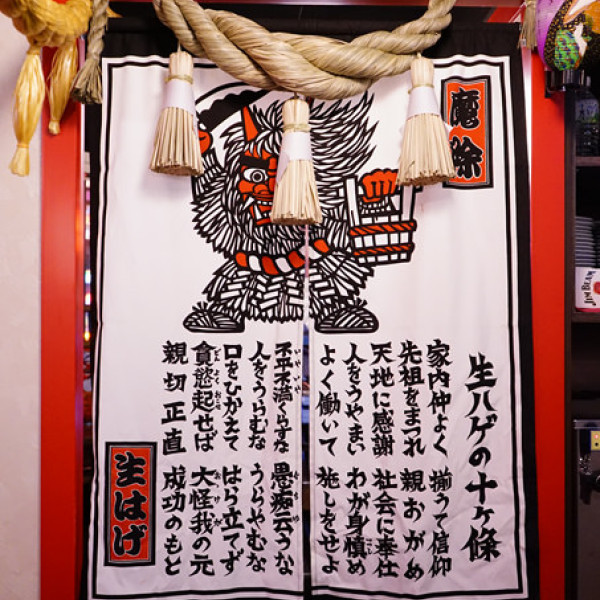 魔除
生ハゲの十ヶ條
家内仲よく 揃うて信仰
先祖をまつれ 親おがめ
天地に感謝 社会に奉仕
人をうやまい わが身慎め
よく働いて 施しをせよ
不平不満くらすな 愚痴云うな
人をうらむな うらやむな
口をひかえて はら立てず
貪慾起せば 大怪我の元
親切正直 成功のもと
生はげ
JIM BEAM